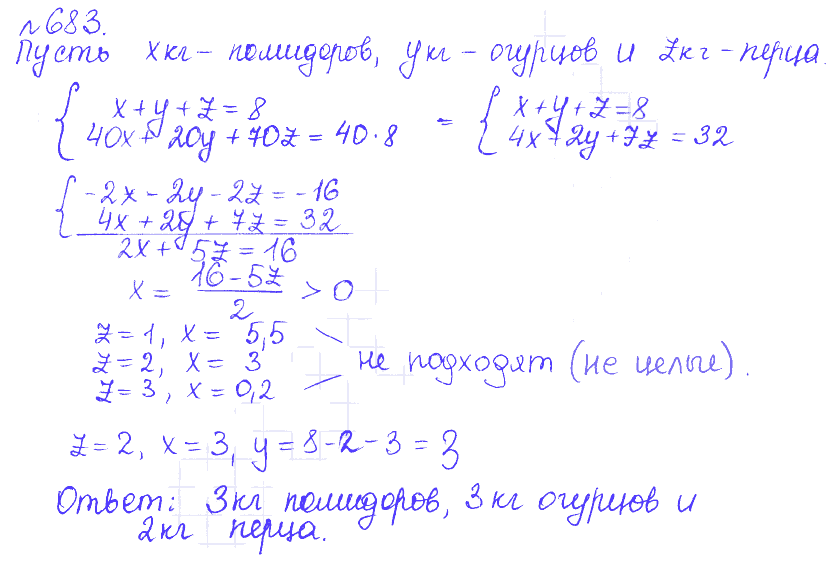 №683.
Пусть x кг – помидоров, y кг – огурцов и z кг – перца.
{ x + y + z = 8 = { x + y + z = 8
40x + 20y + 70z = 40 · 8 4x + 2y + 7z = 32
{ -2x - 2y - 2z = -16
4x + 2y + 7z = 32
2x + 5z = 16
x = (16 - 5z)/2 > 0
z = 1, x = 5,5
z = 2, x = 3 не подходят (не целые).
z = 3, x = 0,2
z = 2, x = 3, y = 8 - 2 - 3 = 3
Ответ: 3 кг помидоров, 3 кг огурцов и
2 кг перца.